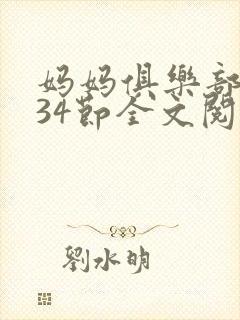 妈妈俱樂部
34節全文閱
劉水明